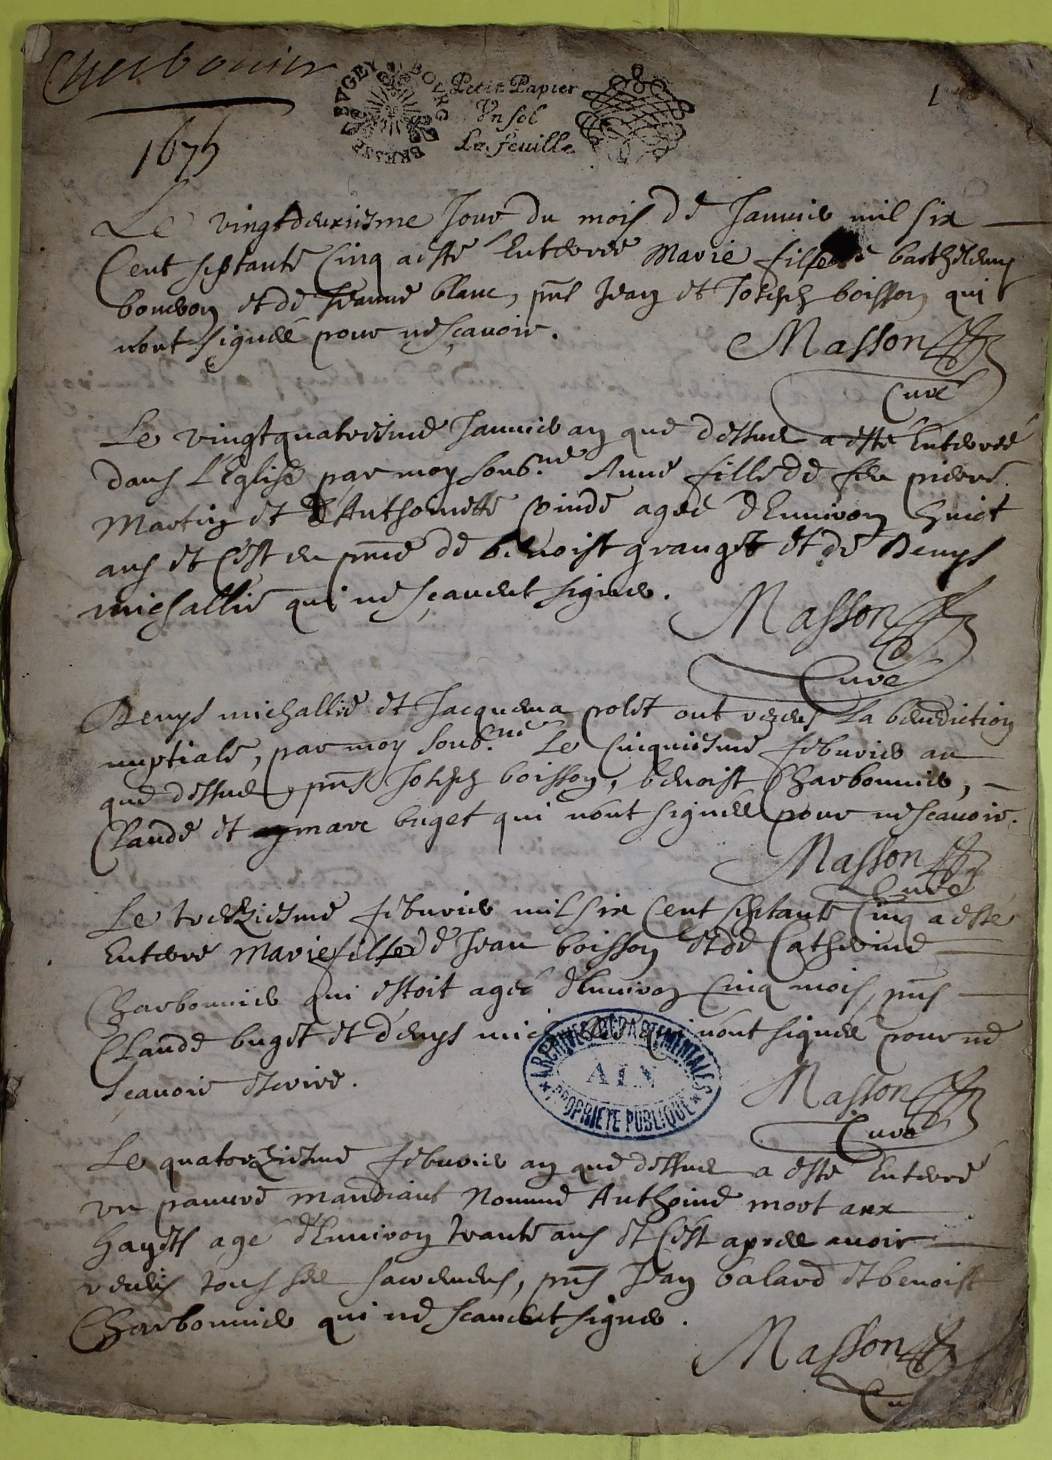 Cherbonier
1675
BRESSE BUGEY BOURG
Petit Papier
Un sol
La feuille
1
Le vingtdeuxiesme Jour du mois de Janvier mil six
Cent septante Cinq a esté Enterrée Marie fille de barthelemy
bondron et de Jeanne blanc, pnts Jean et Joseph boisson qui
nont signéé pour ne sçavoir.
Masson
Curé
Le vingtquatriesme Janvier an que dessus a esté Enterrée
dans L'Eglise par moy soubné Anne fille de feu pierre
Martin et d'Anthoinette aagée d'Environ huict
ans et cest en pnce de benoist granget et de Denys
michallie qui ne sçavent signer.
Masson
Curé
Denys michallie et Jacquema polet ont receu La benediction
nuptiale, par moy soubné Le Cinquiesme febvrier an
que dessus, pnts Joseph boisson, benoist Charbonnier,
Claude et marc buget qui nont signéé pour ne scavoir.
Masson
Curé
Le treziesme febvrier mil six Cent septante Cinq a esté
Enterré Marie fille de Jean boisson et de Catherine
Charbonnier qui estoit agéé d'Environ Cinq mois, pnts
Claude buget et denys qui nont signéé pour ne
sçavoir Escrire.
ARCHIVES DEPARTEMENTALES
AIN
PROPRIETE PUBLIQUE
Masson
Curé
Le quatorziesme febvrier an que dessus a esté Enterré
un pauvre mandiant Nommé Anthoine mort aux
hayes agé d'Environ trante ans et Cest apres avoir
receus tous ses sacremens, pnts Jean balard et benoist
Charbonnier qui ne scavent signer.
Masson